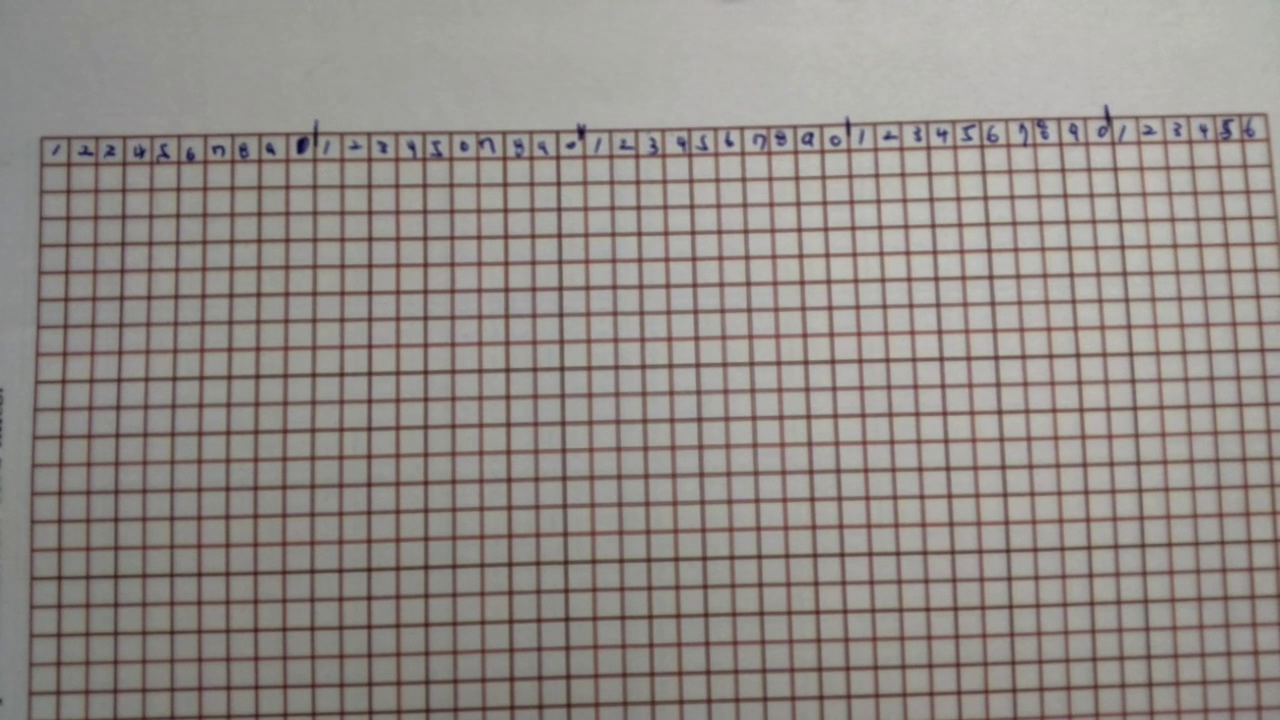 1 2 3 4 5 6 7 8 9 0 1 2 3 4 5 6 7 8 9 0 1 2 3 4 5 6 7 8 9 0 1 2 3 4 5 6 7 8 9 0 1 2 3 4 5 6